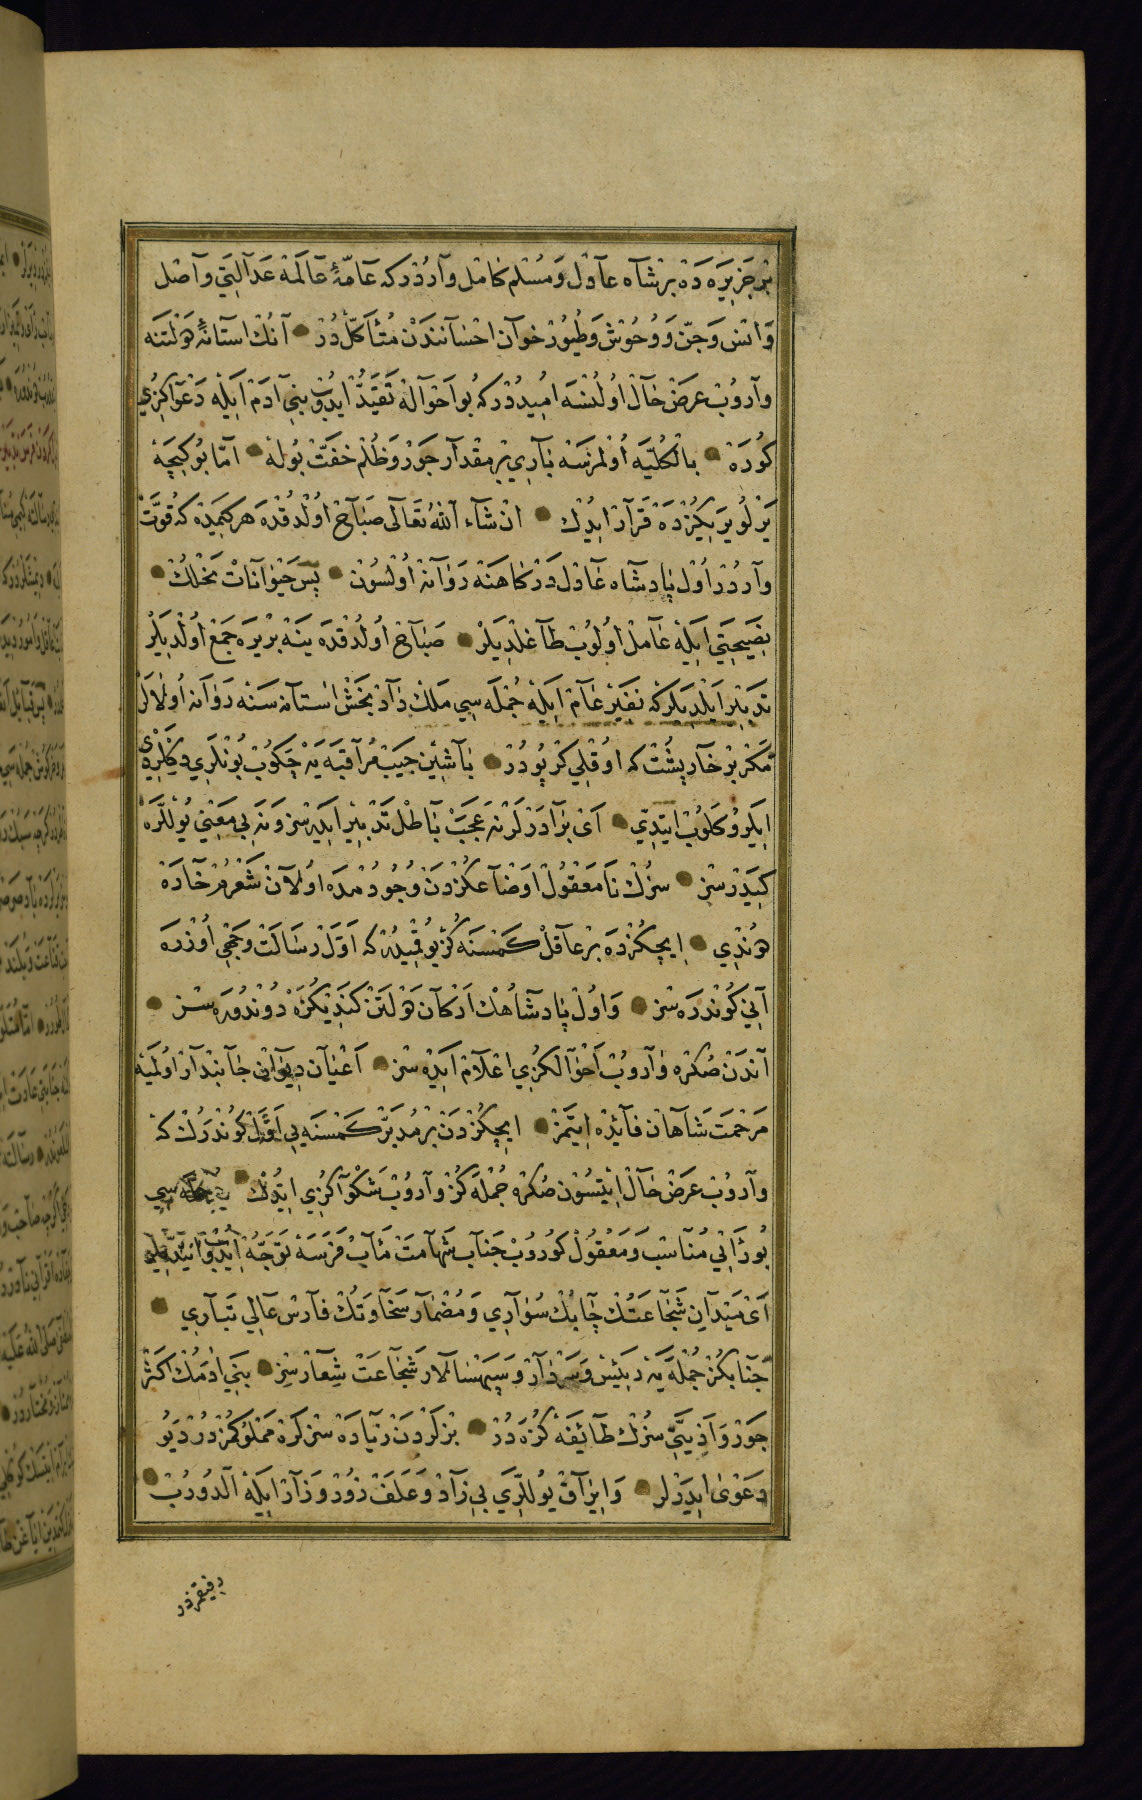 بر جزیره ده بر شاه عادل و مسلم کامل واردر که عامۀ عالمه عدالتی واصل
و انس و جن و وحوش و طیور خوان احساننندن متأکل در آنك استانۀ دولتنه
واروب عرض حال اولنسه امیددر که بو احواله تقید ایدوب بنی آدم ایله دعواکزی
کوره بالکلیه اولمزسه باری بر مقدار جور و ظلم خفت بوله اما بو کیجه
یرلو یریکزده قرار ایدك ان شاء الله تعالی صباح اولدقده هر کیمده که قوت
واردر اول پادشاه عادل درکاهنه روانه اولسون پس حیوانات نخلك
نصیحتی ایله عامل اولوب طاغلدیلر صباح اولدقده ینه بر یره جمع اولدیلر
تدبیر ایلدیلر که نفیر عام ایله جمله سی ملك دادبخش استانه سنه روانه اولالر
مکر بر خارپشت که اوقلی کرپودر باشین جیب مراقبه یه چکوب بونلری دیکلردی
ایلرو کلوب ایتدی ای برادرلر نه عجب باطل تدبیر ایدرسز و نه بی معنی یوللره
کیدرسز سزك نامعقول اوضاعکزدن وجودمده اولان شعرم خاره
دوندی ایچکزده بر عاقل کمسنه کز یوقمیدر که اول رسالت وجهی اوزره
آنی کوندره سز و اول پادشاهك ارکان دولتن کندیکزه دوندوره سز
آندن صکره واروب احوالکزی اعلام ایده سز اعیان دیوانی جانبدار اولمیه
مرحمت شاهان فائده ایتمز ایچکزدن بر مدبر کمسنه یی اول کوندرك که
واروب عرض حال ایتسون صکره جمله کز واروب شکواکزی ایدك جمله سی
بو رائی مناسب و معقول کوروب جناب شهامت مآب فرسه توجه ایدوب ایتدیلر
ای میدان شجاعتك چابك سواری و مضمار سخاوتك فارس عالی تباری
جنابکز جمله یه رئیس و سردار و سپهسالار شجاعت شعارسز بنی ادمك اکثر
جور و اذیتی سزك طائفه کزه در بزلردن زیاده سزلره مملوکمزدر دیو
دعوی ایدرلر و ایراق یوللری بی زاد و علف زور و زار ایله الدوروب
رفیقمزدر